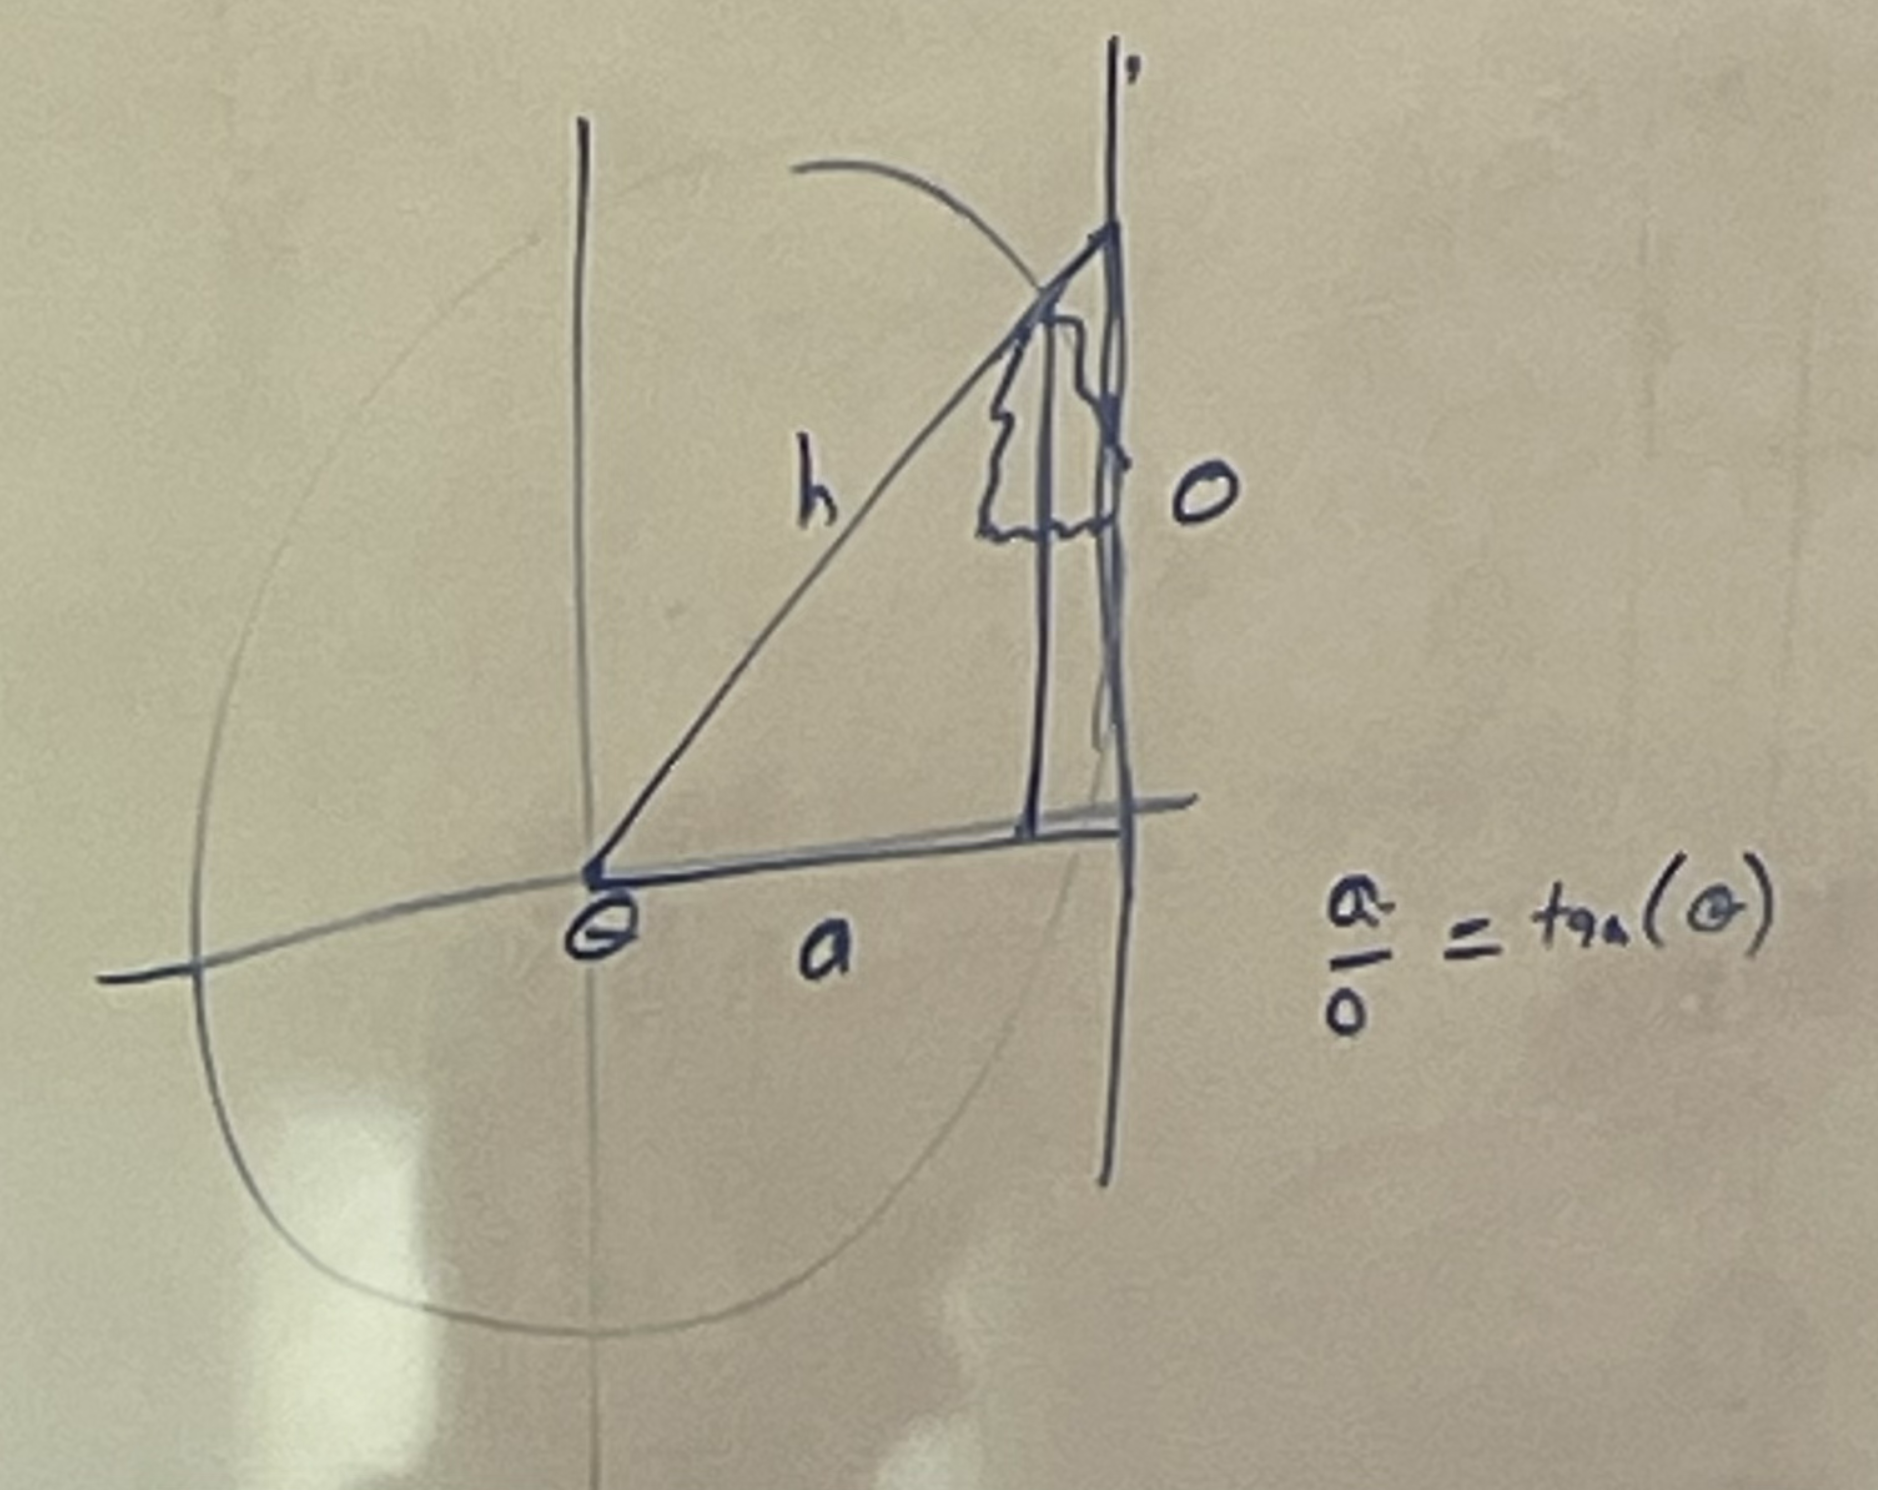 h
o
θ
a
a/o = tan(θ)